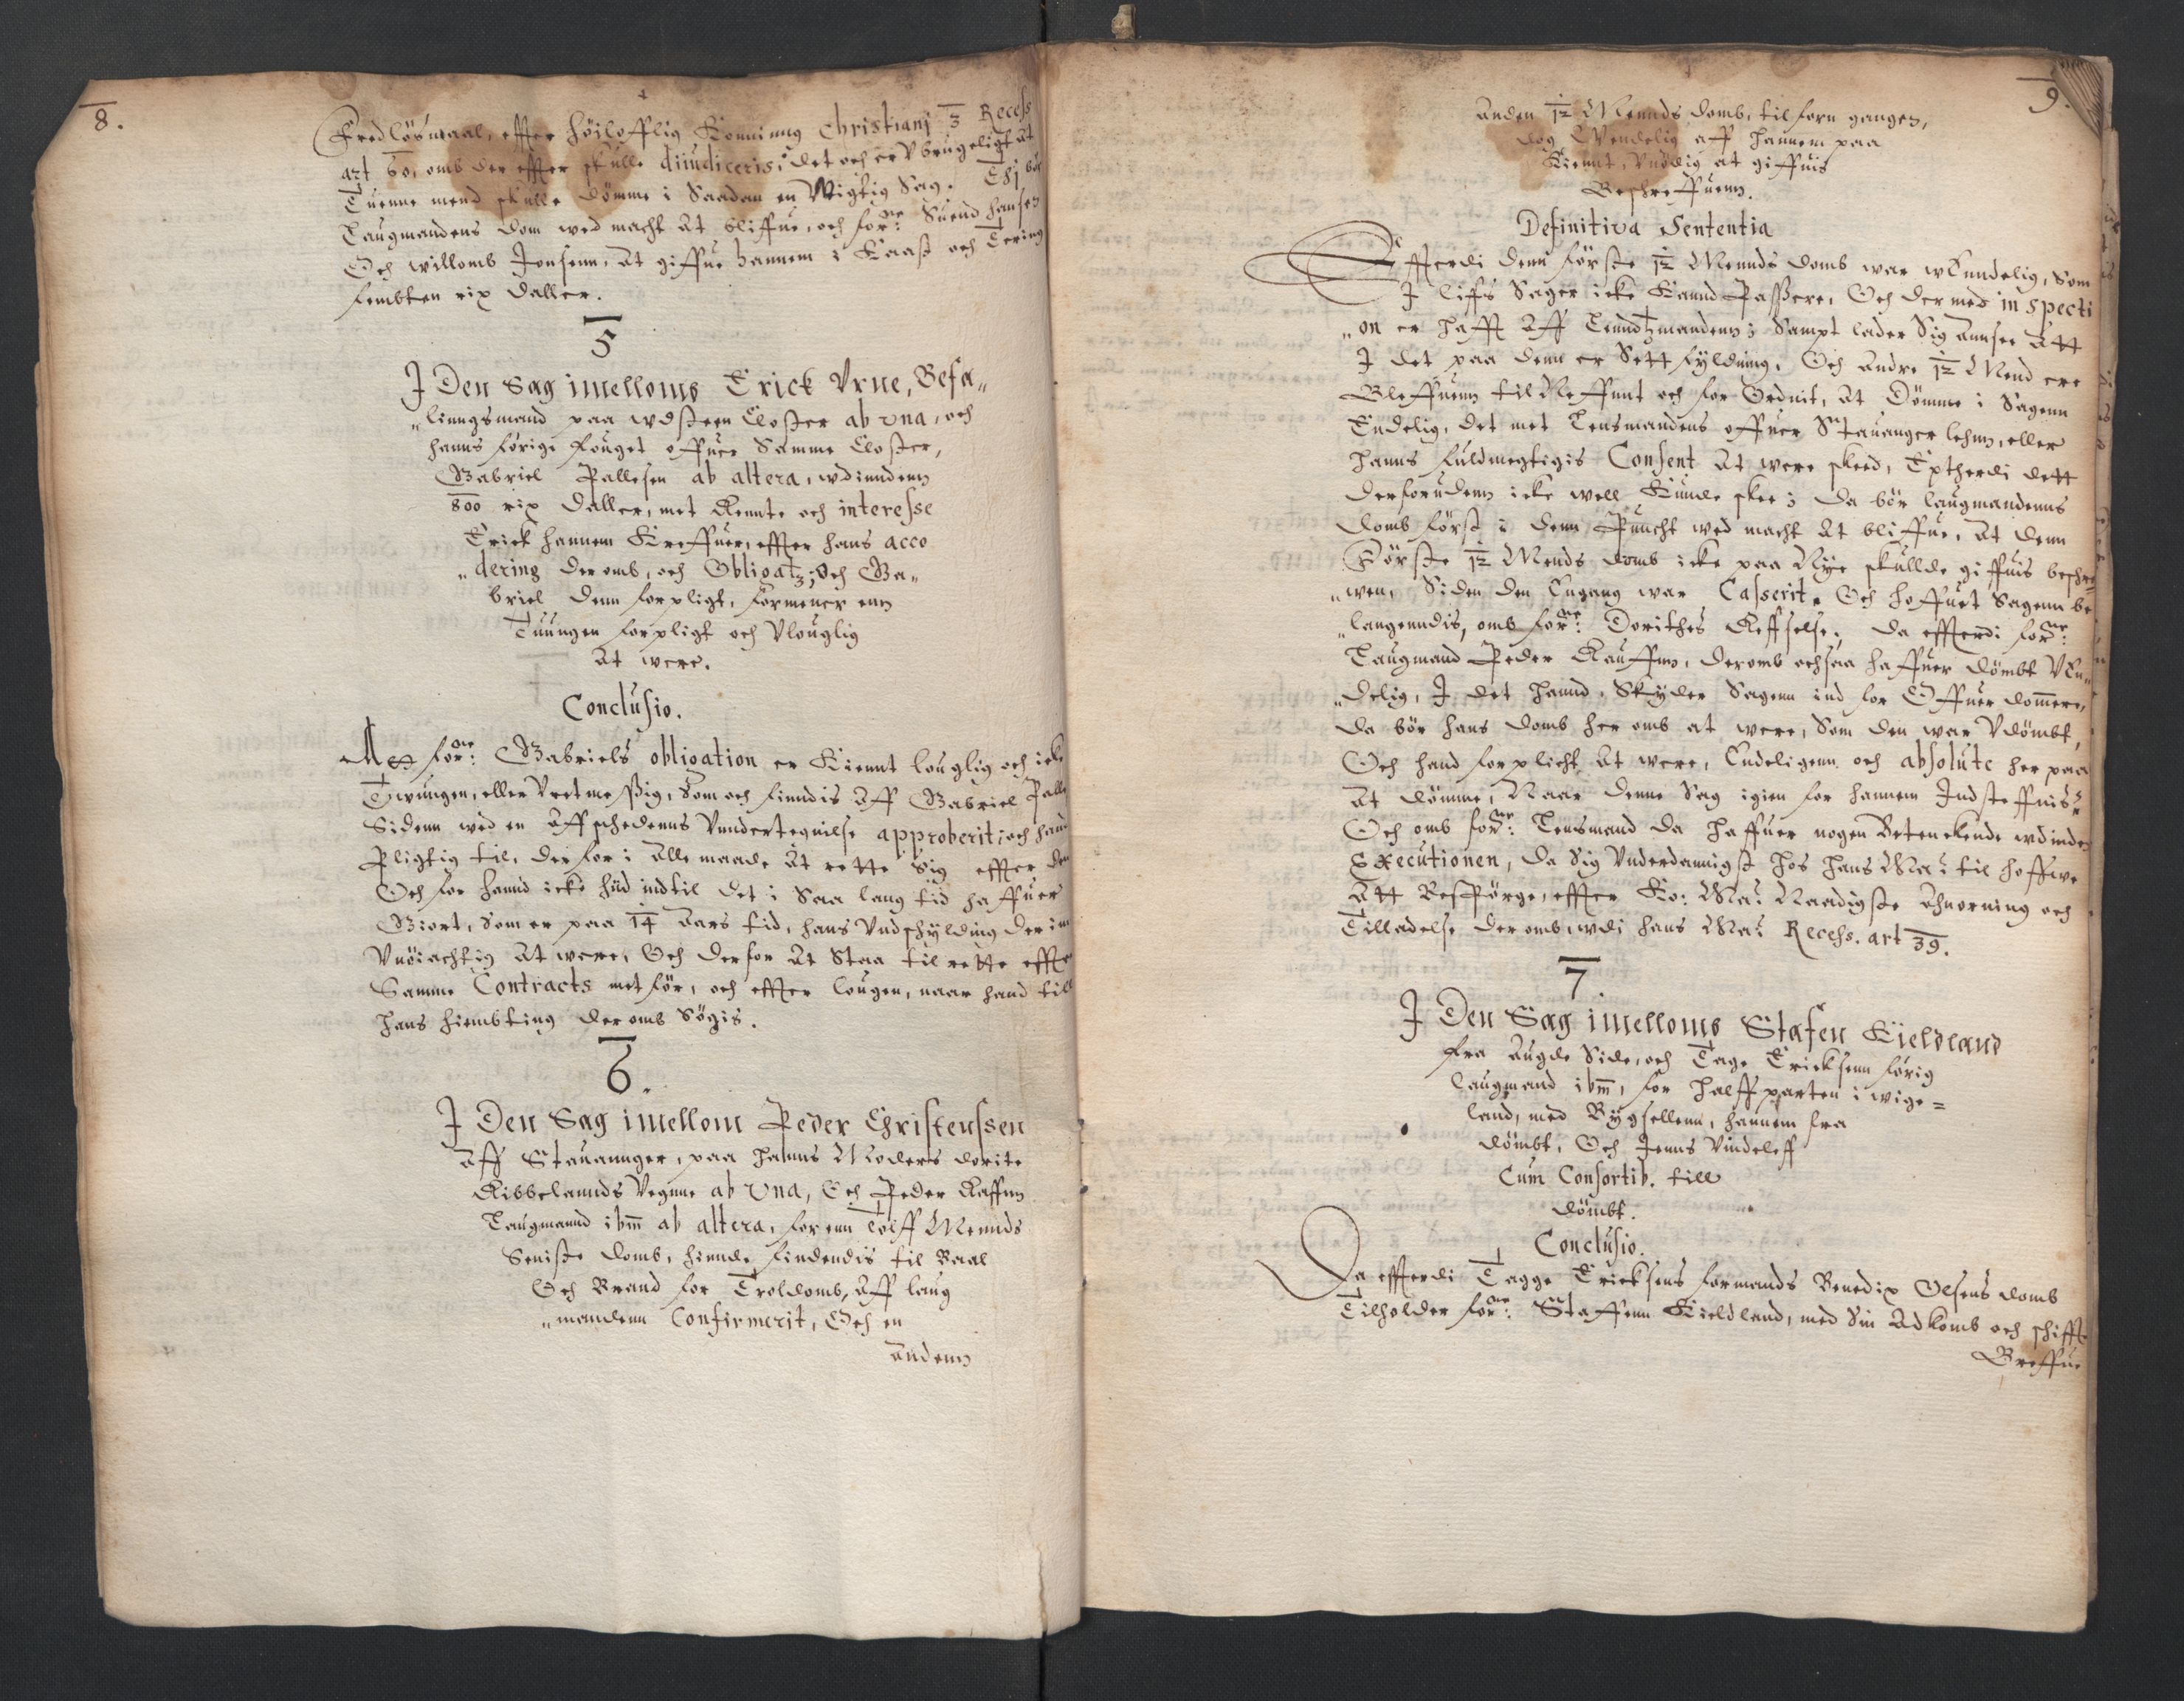 8.
Fredlösmaal, effter höiloffling Konninng Christianj 3 Recess
art 60, omb der effter skulle diiudiceris; det och er Vbrugeligt at
Tuenne mend skulle dömme i Saadan en Wigtig Sag. Thj bör
Laugmandens dom wed macht at bliffue, och forne: Suend hansen
Och willomb Jensenn, at giffue hannem i Kaast och Tering
fembten rix daller.
5
J Den Sag imelloms Erick Vrne, Befa„
„linngsmand paa wdsteen Closter ab vna, och
hanns forige fouget offuer Samme Closter,
Gabriel Pallesen ab altera, wdinndenn
800 rix daller, met Rennte och interesse
Erick hannem Kreffuer, effter hans acco
„dering der omb, och Obligatz; Och Ga„
briel denn forpligt, formener enn
Tuungen forpligt och Vlouglig
at were.
Conclusio.
Att forne: Gabriels obligation er Kiennt louglig och icke
Twungen, eller Vretmessig, Som och finndis aff Gabriel Palle
Sidenn wed en affschedenns Vnndertegnilse approberit; och hand
Pligtig til, der for i alle maade at rette sig effter den
Och for hannd icke hüd indtil det i Saa lang tid haffuer
Giort, Som er paa 14 aars tid, hans Vndschylding der im
Vnöiachtig at were, Och der for at Staa til rette effter
Samme Contracts metför, och effter lougen, naar hand till
hans hiembting der omb Sögis.
6.
J Den Sag imellom Peder Christenssen
aff Stauannger, paa hanns Moders dorite
Kibbelannds Vegnne ab Vna, Och Peder Kaffun
Laugmannd ibm ab altera, for enn tolff Mennds
Seniste domb, hinnde findendis til Baal
Och Brand for Troldomb, aff laug
„mandenn Confirmerit, Och en
andenn
9.
anden 12 Mennds domb, til forn gangen,
dog Wendelig aff hannem paa
Kiennt, Vuddig at giffuis
Beschreffuenn.
Definitiva Sententia
Effterdi denn förste 12 Mennds domb war wEnndelig, Som
J liffs Sager icke Kannd Passere, Och der med inspecti
„on er hafft aff Lenndtzmandenn; Sampt lader Sig annsee att
J det paa denn er Sett fyldning, Och andre 12 Mend ere
Bleffuenn til Neffnnt och for Ordnit, at dömme i Sagenn
Endelig, det met Lensmandens offuer Stauanger lehnn, eller
hanns fuldmegtigis Consent at were skeed, Eptherdi dett
der forudenn icke well Kunde skee; da bör laugmandenns
domb först i denn Puncht wed macht at bliffue, at denn
Förste 12 Mends domb icke paa Nye skullde giffuis beschre
„wen, Siden den Engang war Casserit. Och hoffuet Sagenn be
„langenndis, omb forne: Dorithes Reffselse; da effterdi forne:
Laugmand Peder Kauffun, der omb ochsaa haffuer dömbt VEn„
„delig, J det hannd Skyder Sagenn ind for Offuer dommere,
da bör hans domb her omb at were, Som den war Vdömbt,
Och hand forplicht at were, Endeligenn och absolute her paa
at dömme, Naar denne Sag igien for hannem Indsteffnis.
Och omb forne: Lensmand da haffuer nogen Betenckende wdinden
Executionen, da Sig Vnderdannigst hos hans Ma: til hoffwe
att Bespörge, effter Ko: Ma: Naadigste ahnorning och
Tilladelse der omb, wdi hans Ma: Recess. art 39.
7.
J Den Sag imelloms Stafen Kieldland
fra augde Side, och Tage Ericksenn forig
Laugmand ibm, for halffparten i wige=
land, med Bygsellenn, hannem fra
dömbt, Och Jenns Vindeleff
Cum Consortib. till
dömbt.
Conclusio.
Da effterdi Tagge Ericksens formands Benedix Olsens domb
Tilholder forne: Staffenn Kieldland, med Sin adkomb och schiffte
Breffue